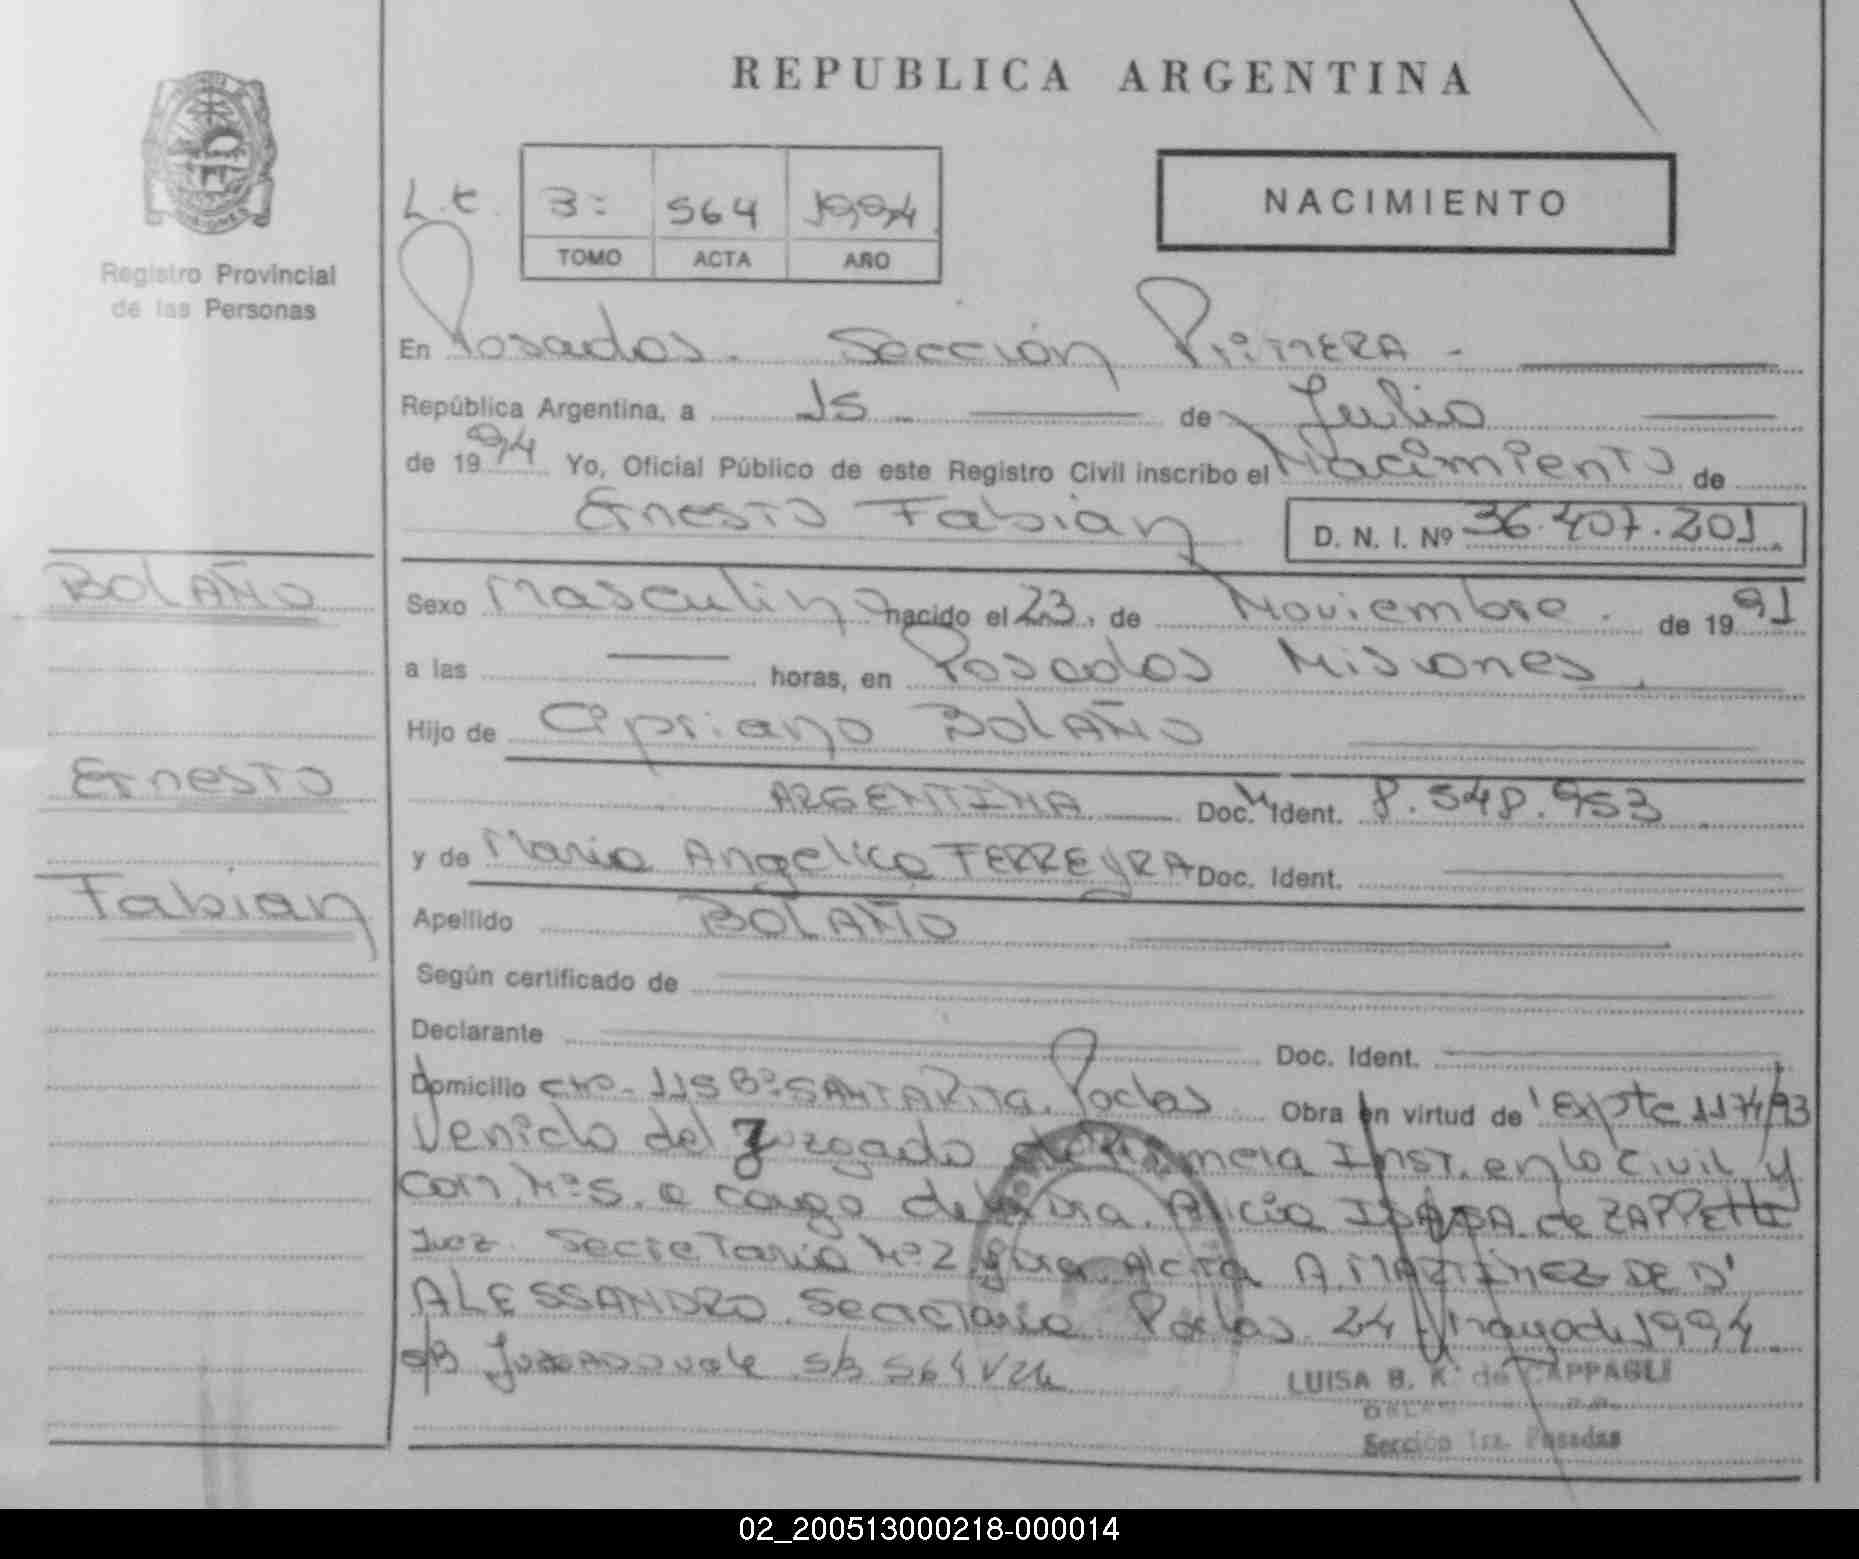 REPUBLICA ARGENTINA
Registro Provincial
de las Personas
L.E.
3º 564 1994
TOMO ACTA AÑO
NACIMIENTO
En Posadas. Sección Primera -
República Argentina, a 15 de Julio
de 1994 Yo, Oficial Público de este Registro Civil inscribo el Nacimiento de
Ernesto Fabián D. N. I. Nº 36.407.201.
BOLAÑO
Ernesto
Fabian
Sexo Masculino nacido el 23 de Noviembre de 1991
a las horas, en Posadas Misiones
Hijo de Cipriano BOLAÑO
ARGENTINA Doc. Ident. 8.548.953
y de Maria Angelica FERREYRA Doc. Ident.
Apellido BOLAÑO
Según certificado de
Declarante Doc. Ident.
Domicilio 115 Bº SANTA RITA. Pocas Obra en virtud de Expte 1174/93
Venido del Juzgado de Primera Inst. en lo Civil y
Com. Nº 5. a cargo de la Dra. Alicia de ZAPPETTI
Juez. Secretaria Nº 2 A. MARTINEZ DE D'
ALESSANDRO. Secretaria Posdas 24 Mayo de 1994
s/b Juzgado vale s/b 564 Vale
LUISA B. K. de CAPPAGLI
Sección 1ra. Posadas
02_200513000218-000014